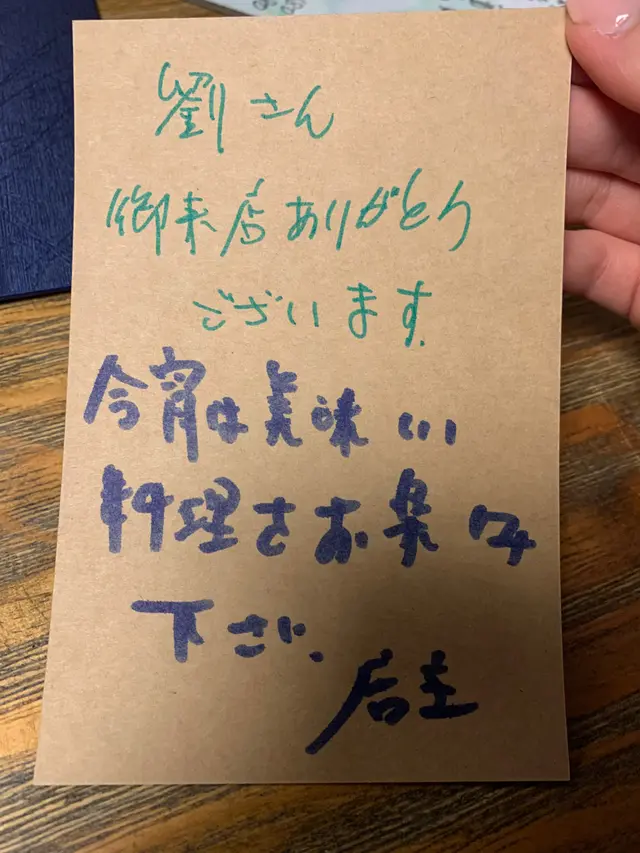 劉さん
御来店ありがとう
ございます.
今宵は美味しい
料理をお楽しみ
下さい、
店主